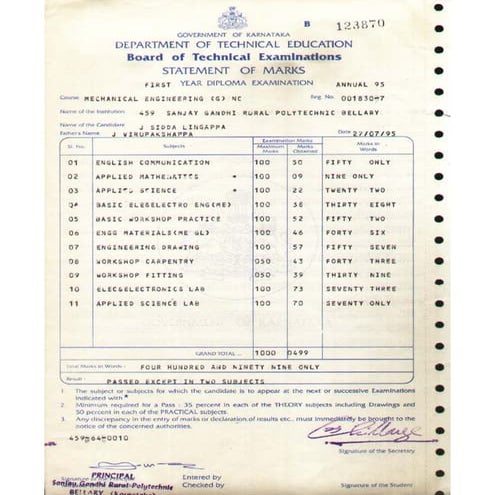 B 123870
GOVERNMENT OF KARNATAKA
DEPARTMENT OF TECHNICAL EDUCATION
Board of Technical Examinations
STATEMENT OF MARKS
FIRST YEAR DIPLOMA EXAMINATION ANNUAL 95
Course MECHANICAL ENGINEERING (G) NC Reg. No. 00183047
Name of the Institution 459 SANJAY GANDHI RURAL POLYTECHNIC BELLARY
Name of the Candidate J SIDDA LINGAPPA
Father's Name J VIRUPAKSHAPPA Date 27/07/95
Sl. No. Subjects Examination Marks Maximum Marks Marks Obtained Marks in Words
01 ENGLISH COMMUNICATION 100 50 FIFTY ONLY
02 APPLIED MATHEMATICS * 100 09 NINE ONLY
03 APPLIED SCIENCE * 100 22 TWENTY TWO
04 BASIC ELE&ELECTRO ENG(ME) 100 38 THIRTY EIGHT
05 BASIC WORKSHOP PRACTICE 100 52 FIFTY TWO
06 ENGG MATERIALS(ME GL) 100 46 FORTY SIX
07 ENGINEERING DRAWING 100 57 FIFTY SEVEN
08 WORKSHOP CARPENTRY 050 43 FORTY THREE
09 WORKSHOP FITTING 050 39 THIRTY NINE
10 ELEC&ELECTRONICS LAB 100 73 SEVENTY THREE
11 APPLIED SCIENCE LAB 100 70 SEVENTY ONLY
GRAND TOTAL ... 1000 0499
Total Marks in Words - FOUR HUNDRED AND NINETY NINE ONLY
Result - PASSED EXCEPT IN TWO SUBJECTS
1. The subject or subjects for which the candidate is to appear at the next or successive Examinations
indicated with *
2. Minimum required for a Pass - 35 percent in each of the THEORY subjects including Drawings and
50 percent in each of the PRACTICAL subjects.
3. Any discrepancy in the entry of marks or declaration of results etc., must immediately be brought to the
notice of the concerned authorities.
Signature of the Secretary
PRINCIPAL
Sanjay Gandhi Rural Polytechnic
BELLARY (Karnataka)
Entered by
Checked by
Signature of the Student